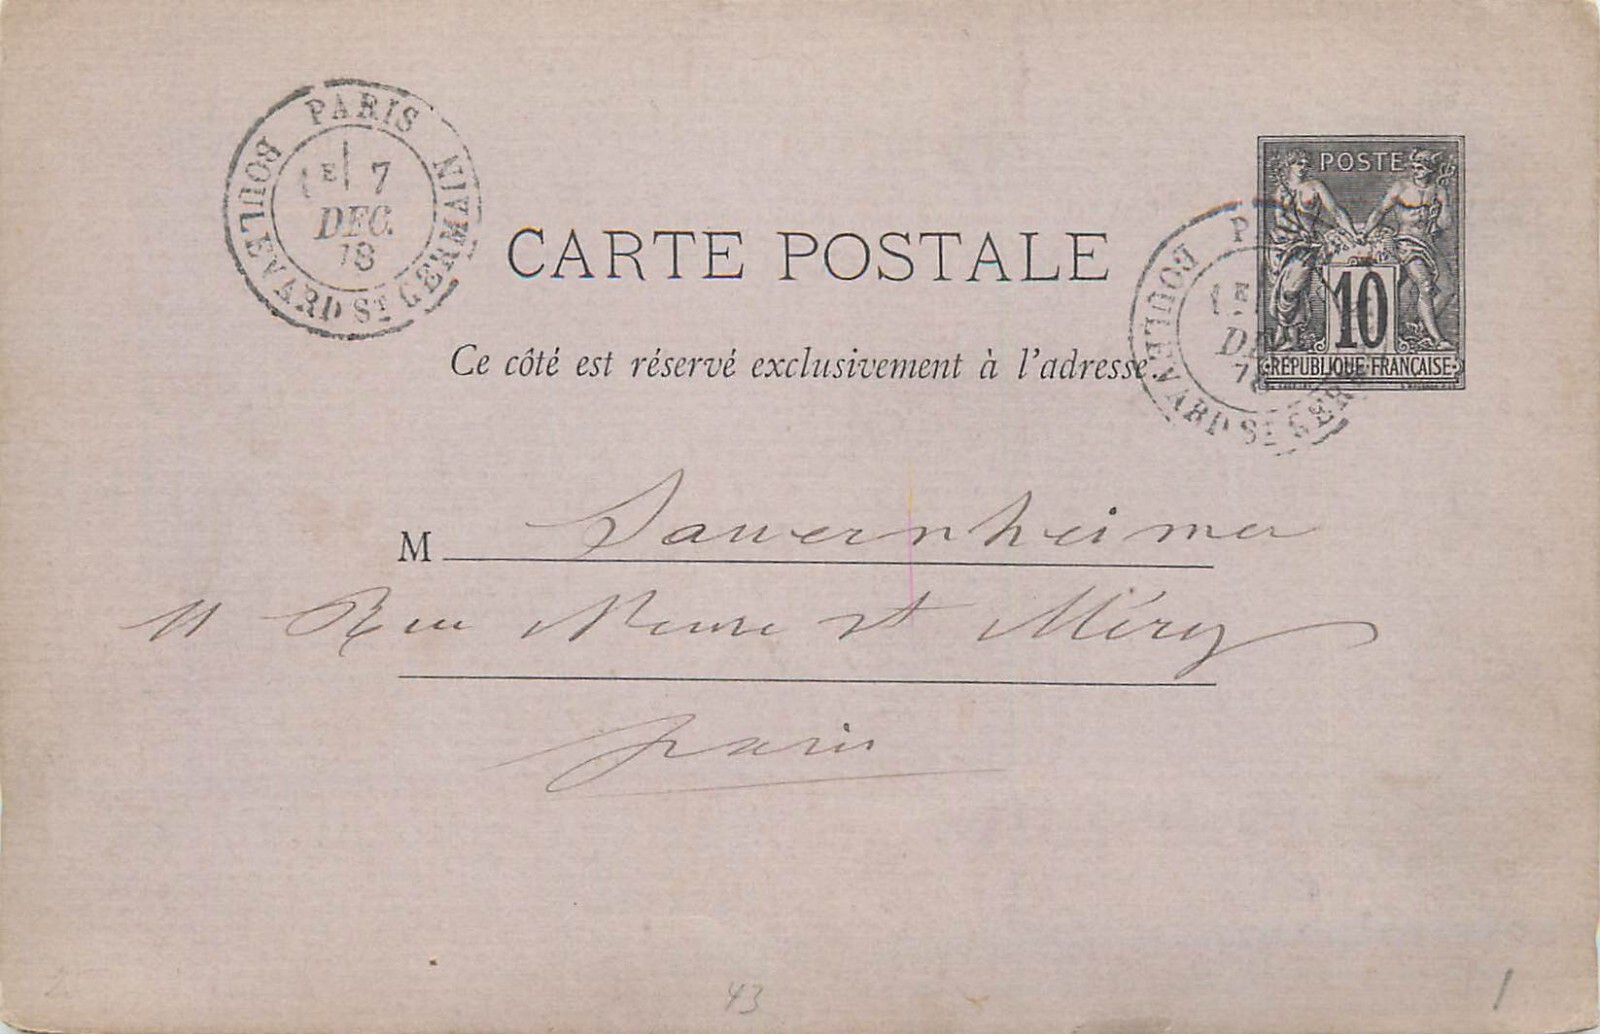 PARIS
BOULEVARD ST GERMAIN
E 7
DEC.
78
POSTE
CARTE POSTALE
10
RÉPUBLIQUE FRANÇAISE
BOULEVARD ST GER
Ce côté est réservé exclusivement à l'adresse.
M Sauernheimer
11 Rue Neuve St Méry
Paris
43
1